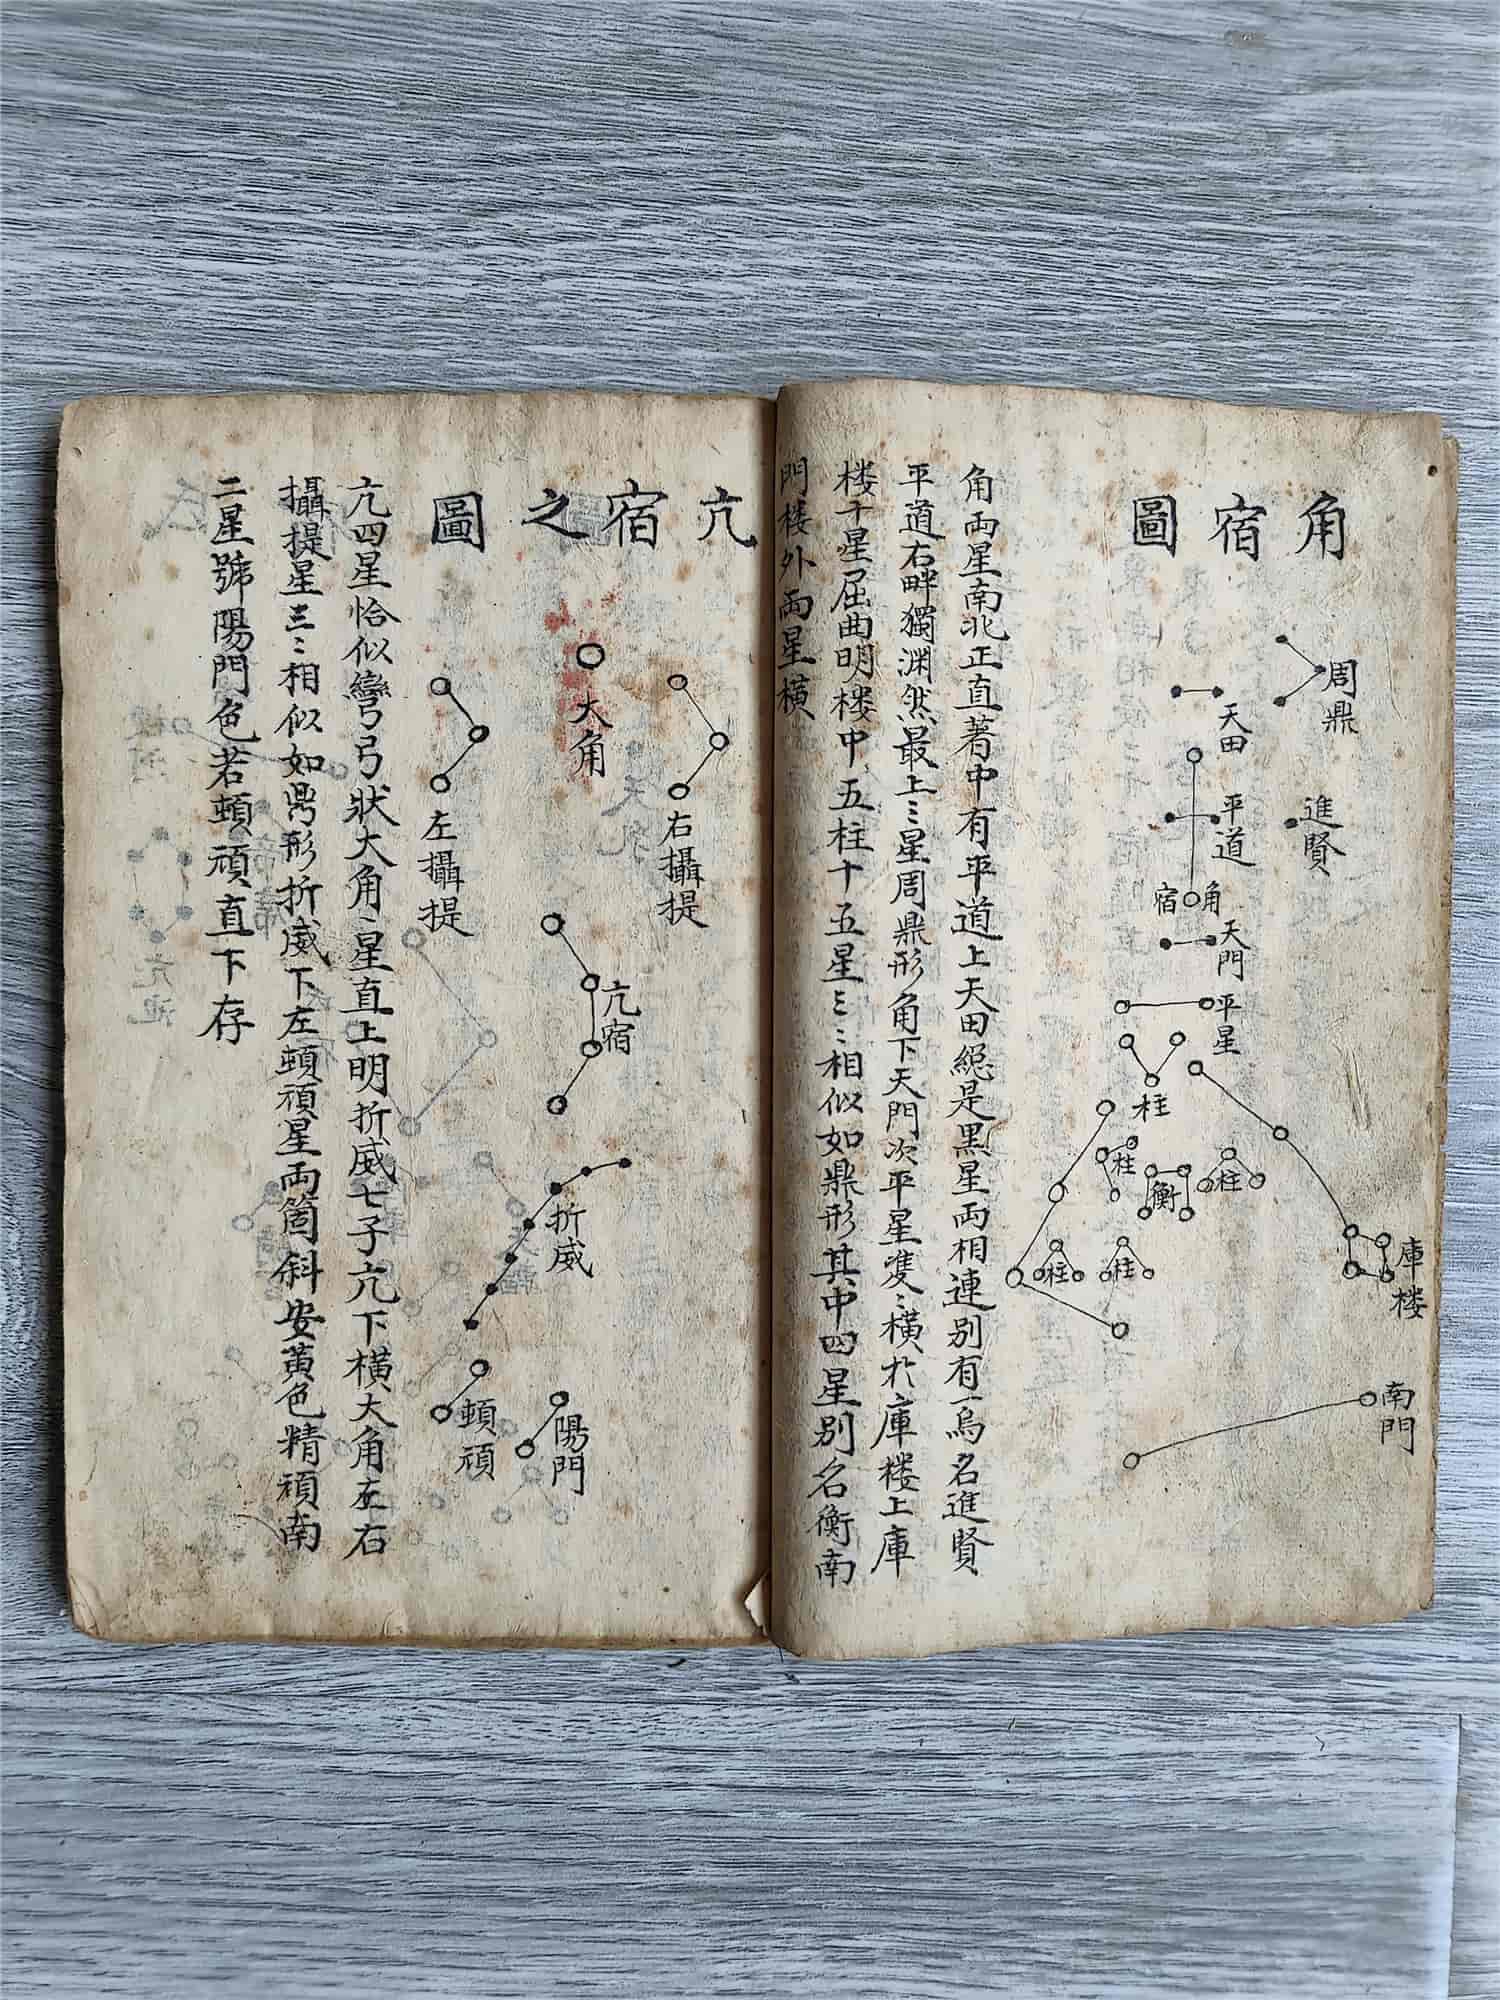 角宿圖
周鼎
天田
進賢
平道
角宿
天門
平星
柱
柱
衡
柱
柱
柱
庫楼
南門
角両星南北正直著中有平道上天田緫是黒星両相連別有一烏名進賢
平道右畔獨淵然最上〻星周鼎形角下天門次平星䨇〻橫扵庫楼上庫
楼十星屈曲明楼中五柱十五星三〻相似如鼎形其中四星別名衡南
門楼外両星橫
亢宿之圖
大角
右攝提
左攝提
亢宿
折威
頓頑
陽門
亢四星恰似彎弓狀大角〻星直上明折威七子亢下橫大角左右
攝提星三〻相似如鼎形折威下左頓頑星両箇斜安黃色精頑南
二星號陽門色若頓頑直下存